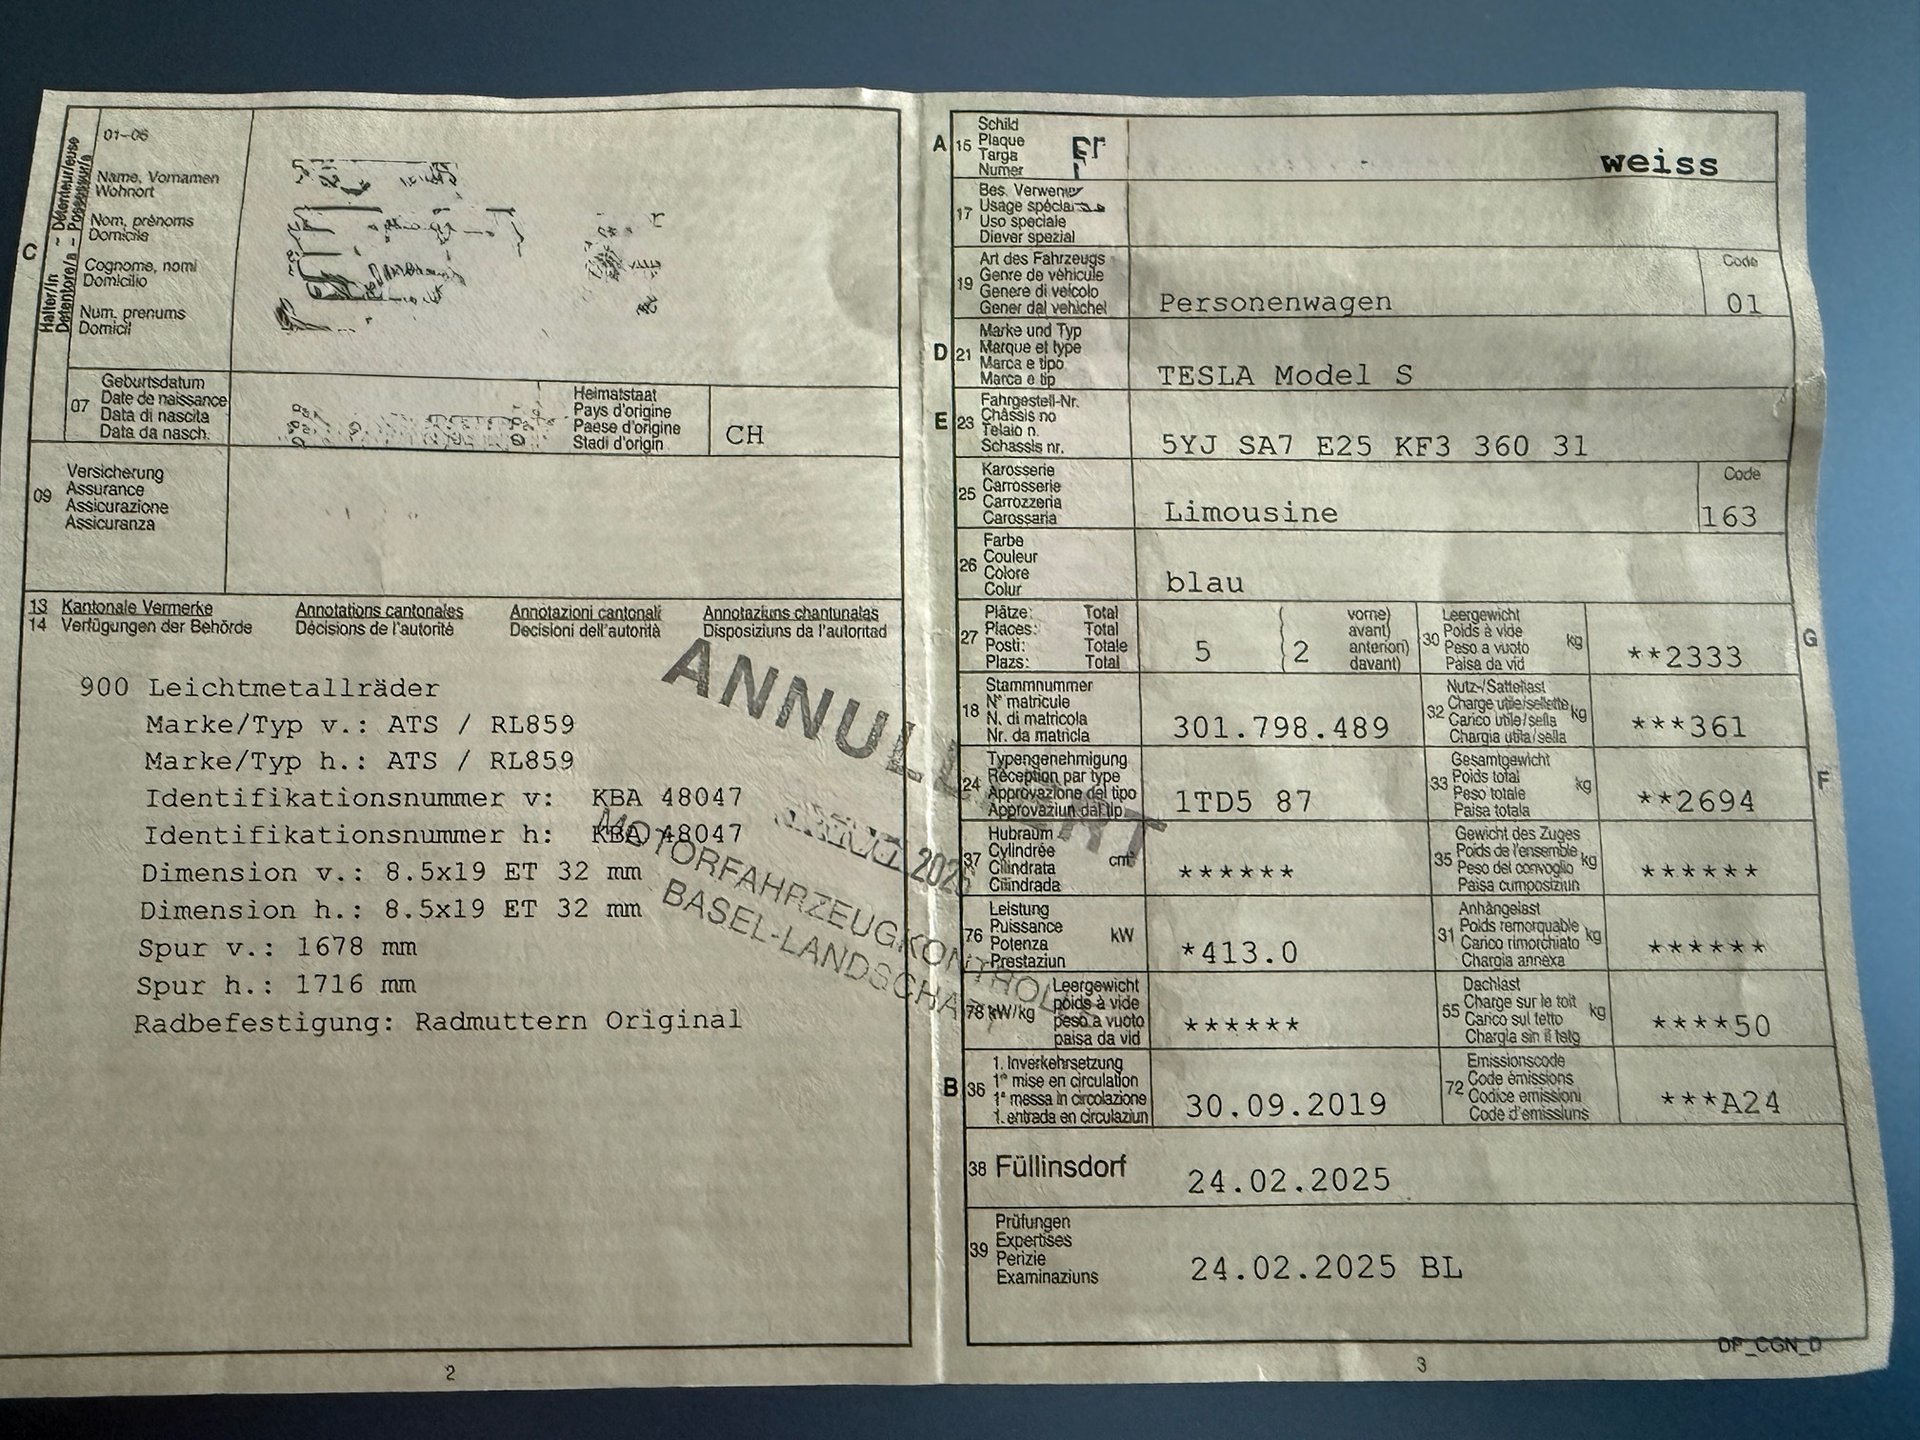 01-06
Halter/in – Détenteur/euse
Detentore/a – Possessur/a
C
Name, Vornamen
Wohnort
Nom, prénoms
Domicile
Cognome, nomi
Domicilio
Num, prenums
Domicil
07
Geburtsdatum
Date de naissance
Data di nascita
Data da nasch.
Heimatstaat
Pays d'origine
Paese d'origine
Stadi d'origin
CH
09
Versicherung
Assurance
Assicurazione
Assicuranza
13 Kantonale Vermerke Annotations cantonales Annotazioni cantonali Annotaziuns chantunalas
14 Verfügungen der Behörde Décisions de l'autorité Decisioni dell'autorità Disposiziuns da l'autoritad
900 Leichtmetallräder
Marke/Typ v.: ATS / RL859
Marke/Typ h.: ATS / RL859
Identifikationsnummer v: KBA 48047
Identifikationsnummer h: KBA 48047
Dimension v.: 8.5x19 ET 32 mm
Dimension h.: 8.5x19 ET 32 mm
Spur v.: 1678 mm
Spur h.: 1716 mm
Radbefestigung: Radmuttern Original
MOTORFAHRZEUGKONTROLLE
BASEL-LANDSCHAFT
2
A 15
Schild
Plaque
Targa
Numer
weiss
17
Usage spécial
Uso speciale
Diever spezial
19
Art des Fahrzeugs
Genre de véhicule
Genere di veicolo
Gener dal vehichel
Personenwagen
Code
01
D 21
Marke und Typ
Marque et type
Marca e tipo
Marca e tip
TESLA Model S
E 23
Fahrgestell-Nr.
Châssis no
Telaio n.
Schassis nr.
5YJ SA7 E25 KF3 360 31
25
Karosserie
Carrosserie
Carrozzeria
Carossaria
Limousine
Code
163
26
Farbe
Couleur
Colore
Colur
blau
27
Plätze: Total
Places: Total
Posti: Totale
Plazs: Total
5
2
vorne)
avant)
anteriori)
davant)
30
Leergewicht
Poids à vide
Peso a vuoto
Paisa da vid
kg
**2333
G
18
Stammnummer
N° matricule
N. di matricola
Nr. da matricla
301.798.489
32
Nutz-/Sattellast
Charge utile/sellette
Carico utile/sella
Chargia utila/sella
kg
***361
24
Typengenehmigung
Réception par type
Approvazione del tipo
Approvaziun dal tip
1TD5 87
33
Gesamtgewicht
Poids total
Peso totale
Paisa totala
kg
**2694
F
37
Hubraum
Cylindrée
Cilindrata
Cilindrada
cm³
******
35
Gewicht des Zuges
Poids de l'ensemble
Peso del convoglio
Paisa cumposiziun
kg
******
76
Leistung
Puissance
Potenza
Prestaziun
kW
*413.0
31
Anhängelast
Poids remorquable
Carico rimorchiato
Chargia annexa
kg
******
78 kW/kg
Leergewicht
poids à vide
peso a vuoto
paisa da vid
******
55
Dachlast
Charge sur le toit
Carico sul tetto
Chargia sin il tetg
kg
****50
B 36
1. Inverkehrsetzung
1re mise en circulation
1a messa in circolazione
1. entrada en circulaziun
30.09.2019
72
Emissionscode
Code émissions
Codice emissioni
Code d'emissiuns
***A24
38 Füllinsdorf
24.02.2025
39
Prüfungen
Expertises
Perizie
Examinaziuns
24.02.2025 BL
DP_CGN_D
3